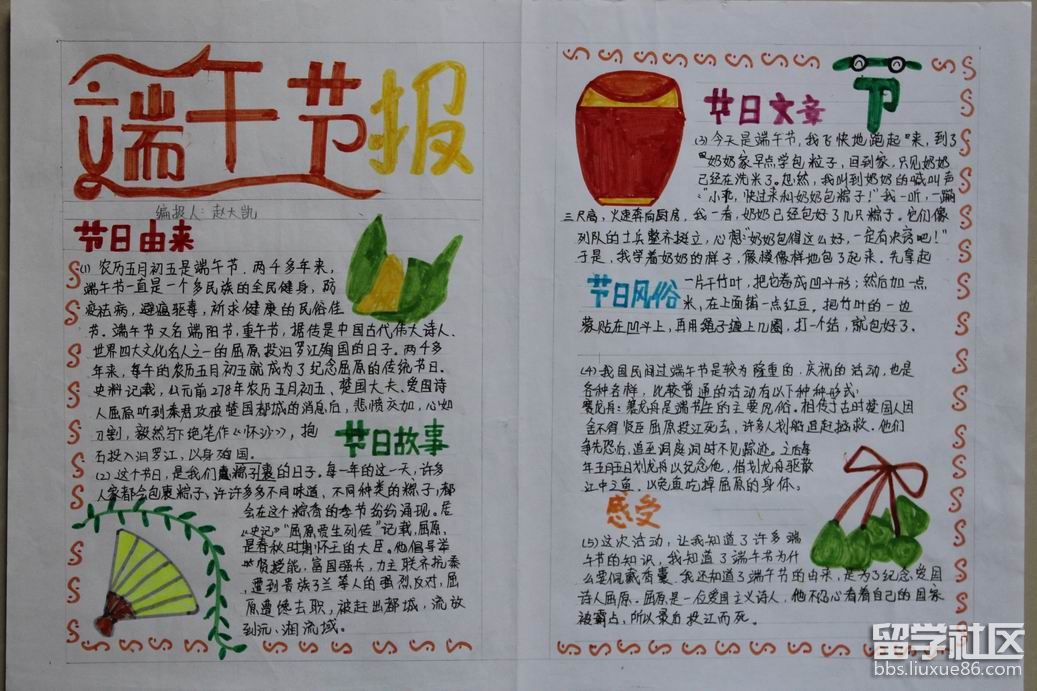 端午节报
编报人:赵大凯
节日由来
(1) 农历五月初五是端午节,两千多年来,
端午节一直是一个多民族的全民健身,防
疫祛病,避瘟驱毒,祈求健康的民俗佳
节。端午节又名端阳节,重午节,据传是中国古代伟大诗人、
世界四大文化名人之一的屈原投汨罗江殉国的日子。两千多
年来,每年的农历五月初五就成为了纪念屈原的传统节日。
史料记载,公元前278年农历五月初五、楚国大夫、爱国诗
人屈原听到秦君攻破楚国都城的消息后,悲愤交加,心如
刀割,毅然写下绝笔作《怀沙》,抱
石投入汨罗江,以身殉国。
节日故事
(2) 这个节日,是我们裹粽子裹的日子。每一年的这一天,许多
人家都会包裹粽子,许许多多不同味道,不同种类的粽子,都
会在这个粽香的季节纷纷涌现。居
《史记》"屈原爱生列传"记载,屈原,
是春秋时期怀王的大臣。他倡导举
贤授能,富国强兵,力主联齐抗秦,
遭到贵族子兰等人的强烈反对,屈
原遭馋去职,被赶出都城,流放
到沅、湘流域。
节
节日文章
(3) 今天是端午节,我飞快地跑起来,到了
奶奶家早点学包粒子,回到家,只见奶奶
已经在洗米了。忽然,我叫到奶奶的喊叫声
:"小 ,快过来和奶奶包粽子!"我一听,一蹦
三尺高,火速奔向厨房,我一看,奶奶已经包好了几只粽子。它们像
列队的士兵整齐挺立,心想:"奶奶包得这么好,一定有决窍吧!"
于是,我学着奶奶的样子,像模像样地包了起来,先拿起
节日风俗
一片干竹叶,把它卷成凹斗形;然后加一点
米,在上面铺一点红豆。把竹叶的一边
贴在凹斗上,再用绳子缠上几圈,打一个结,就包好了。
(4) 我国民间过端午节是较为隆重的,庆祝的活动,也是
各种各样,比较普通的活动有以下种种形式:
赛龙舟:赛龙舟是端节午的主要风俗。相传于古时楚国人因
舍不得贤臣屈原投江死去,许多人划船追赶拯救。他们
争先恐后,追至洞庭湖时不见踪迹。之后每
年五月五日划龙舟以纪念他,借划龙舟驱散
江中之鱼,以免鱼吃掉屈原的身体。
感受
(5) 这次活动,让我知道了许多端
午节的知识,我知道了端午节为什
么要佩戴香囊。我还知道了端午节的由来,是为了纪念爱国
诗人屈原。屈原是一位爱国主义诗人,他不忍心看着自己的国家
被霸占,所以最后投江而死。
留学社区
bbs.liuxue86.com